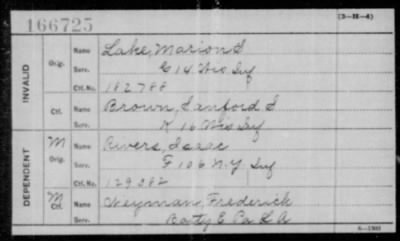 166725
(3-H-4)
INVALID
Orig.
Name Lake, Marion S
Serv. G 14 Wis Inf
Ctf. No. 182788
Ctf.
Name Brown, Sanford S
Serv. K 16 Wis Inf
DEPENDENT
M
Orig.
Name Rivers, Isaac
Serv. F 106 N.Y Inf
Ctf. No. 129082
M
Ctf.
Name Weyman, Frederick
Serv. Batty E Pa L A